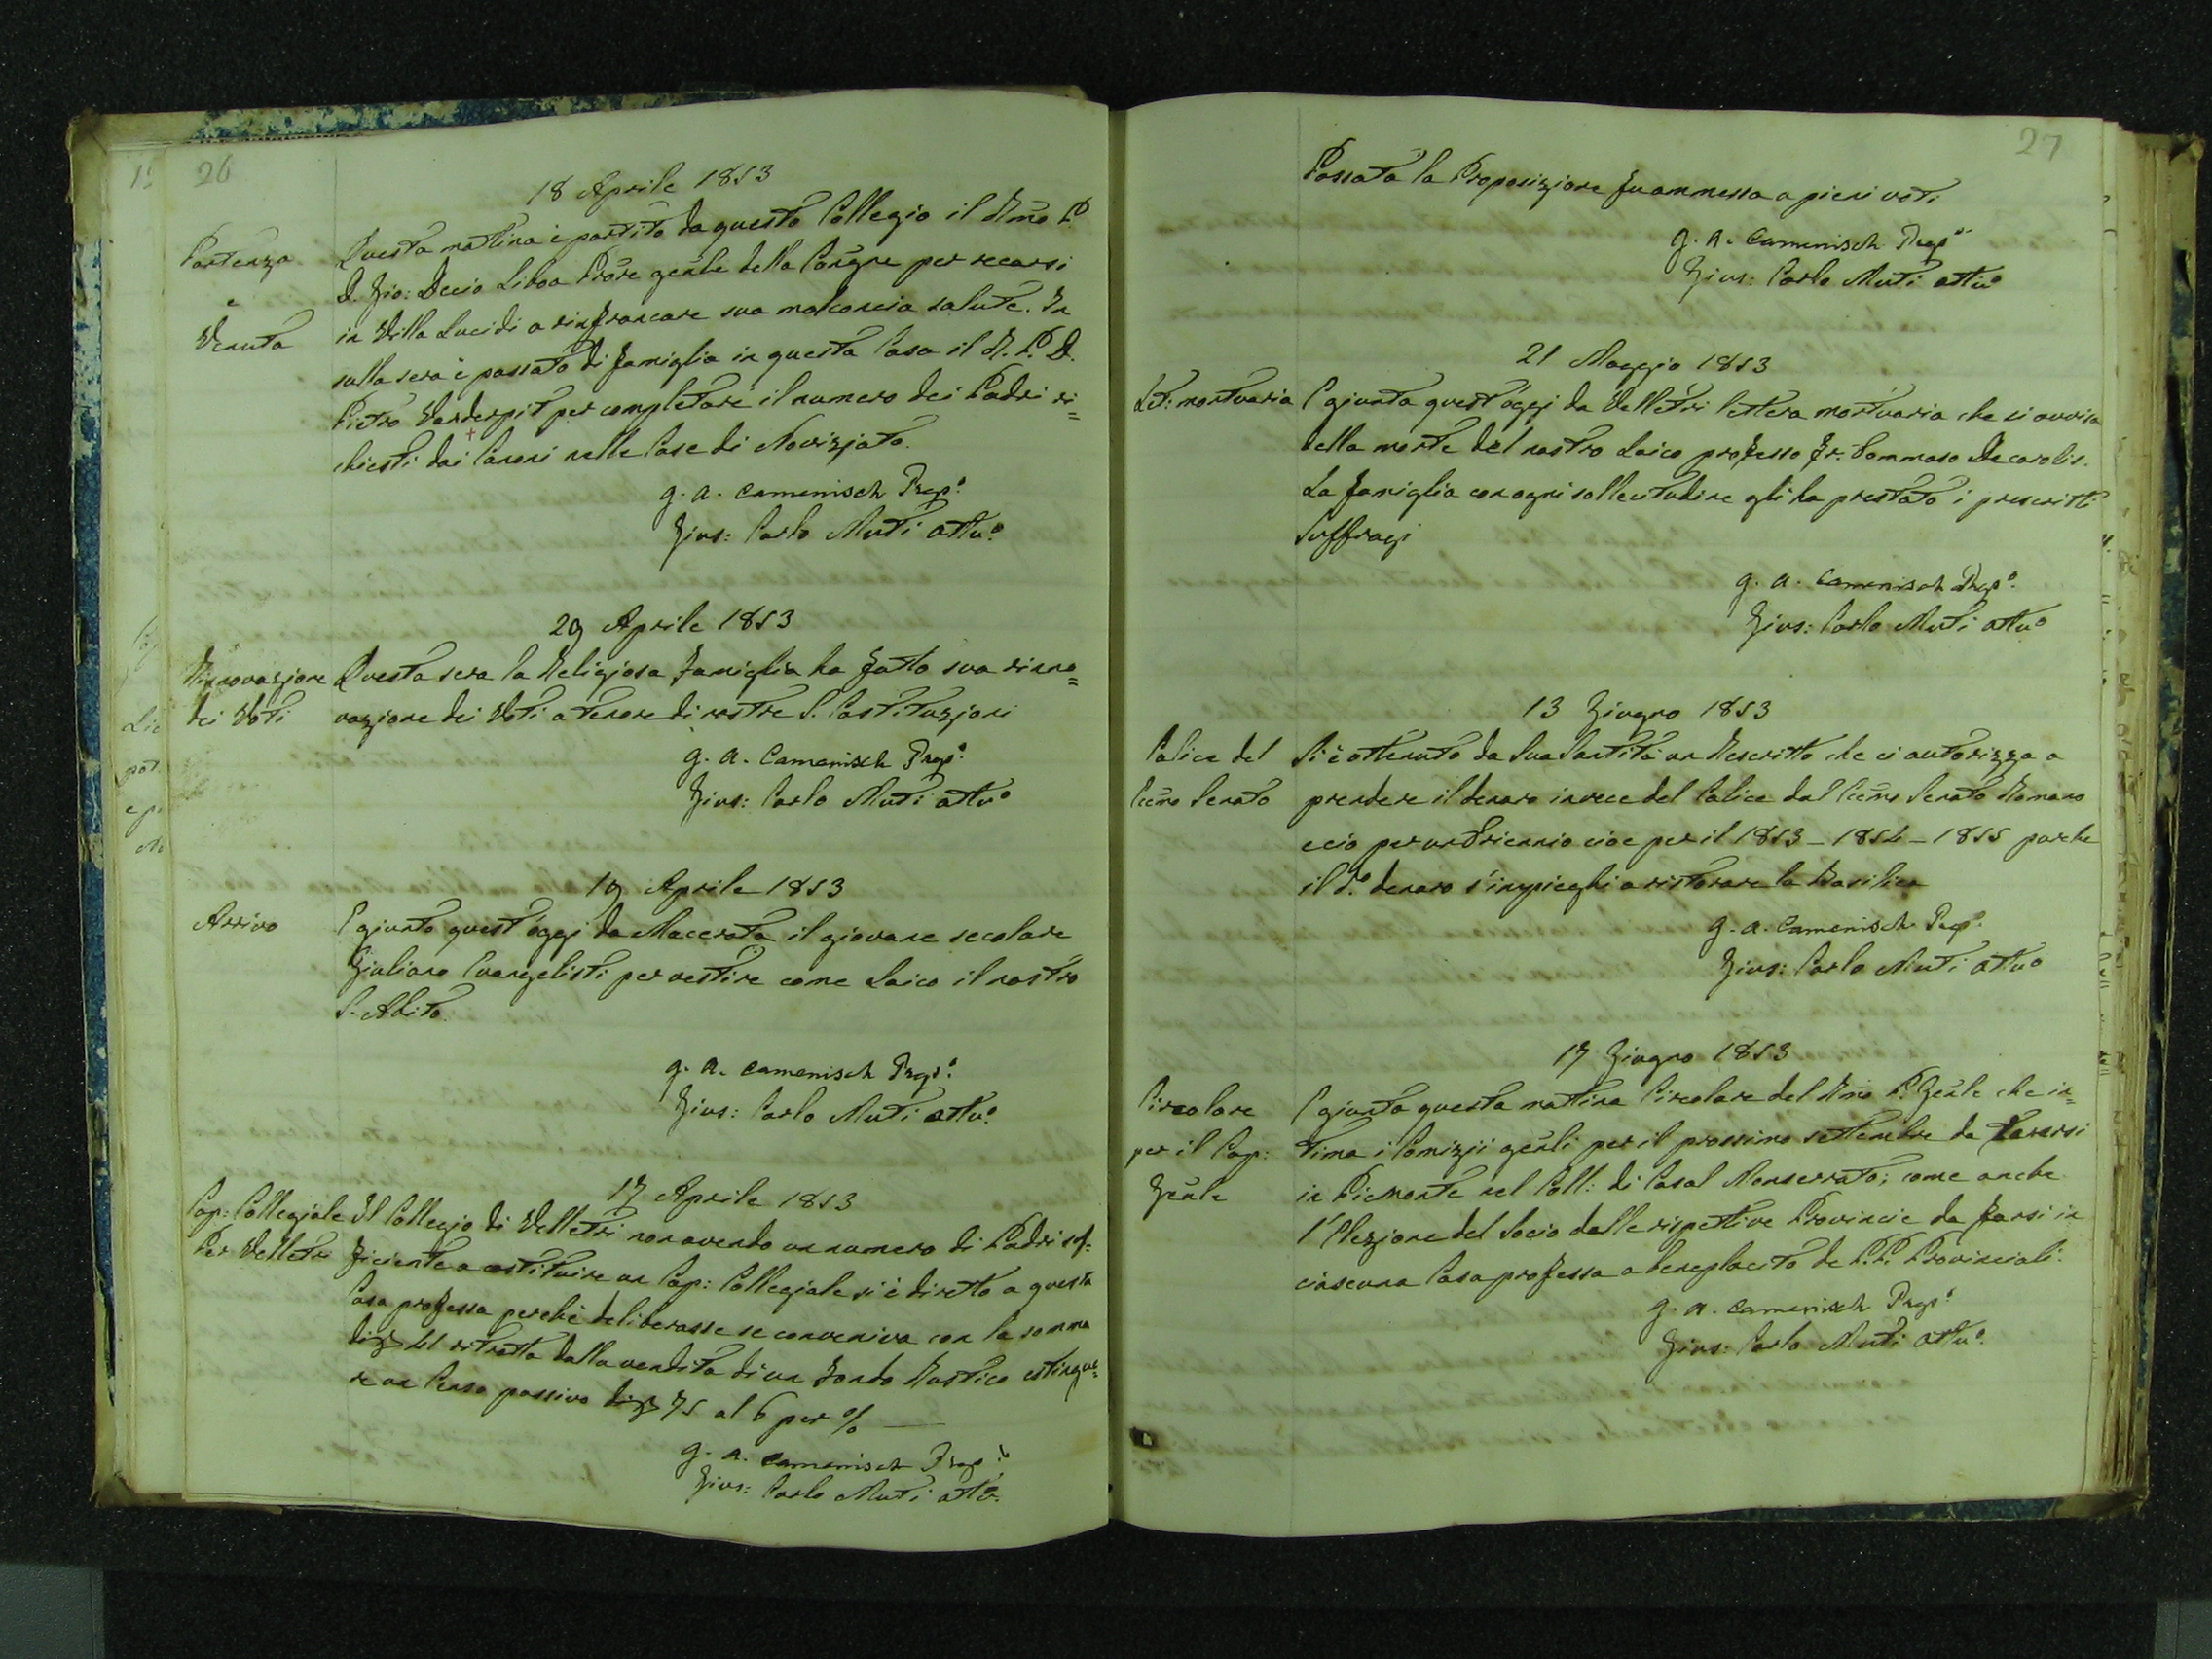 26
18 Aprile 1853
Partenza
e
Venuta
Questa mattina è partito da questo Collegio il Rmo P.
D. Gio: Decio Liboa Prore genle della Congne per recarsi
in Villa Lucidi a rinfrancare sua malconcia salute. In
sulla sera è passato di famiglia in questa Casa il R. P. D.
Pietro Vanderpit per completare il numero dei Padri ri=
chiesti dai Canoni nelle Case di Novizjato.
g. a. Camenisch Prepo.
Gius: Carlo Muti attuo.
29 Aprile 1853
Rinnovazione
dei Voti
Questa sera la Religiosa famiglia ha fatto sua rinno=
vazione dei Voti a tenore di nostre S. Costituzioni
g. a. Camenisch Prepo.
Gius: Carlo Muti attuo
19 Aprile 1853
Arrivo
E giunto quest'oggi da Macerata il giovane secolare
Giuliano Evangelisti per vestire come Laico il nostro
S. Abito.
g. a. Camenisch Prepo.
Gius: Carlo Muti attuo.
17 Aprile 1853
Cap: Collegiale
Per Velletri
Il Collegio di Velletri non avendo un numero di Padri suf=
ficiente a costituire un Cap: Collegiale si è diretto a questa
Casa professa perchè deliberasse se conveniva con la somma
di 41 ritratta dalla vendita di un fondo Rustico estingue=
re un Censo passivo di 75 al 6 per %
g. a. Camenisch Prepo.
Gius: Carlo Muti attuo.
27
Passata la Proposizione fu ammessa a pieni voti
g. a. Camenisch Prepo.
Gius: Carlo Muti attuo
21 Maggio 1853
Let: mortuaria
E giunta quest'oggi da Velletri lettera mortuaria che ci avvisa
della morte del nostro Laico professo Fr. Tommaso Decarolis.
La famiglia con ogni sollecitudine gli ha prestato i prescritti
Suffragi
g. a. Camenisch Prepo.
Gius: Carlo Muti attuo
13 Giugno 1853
Calice del
Eccmo Senato
Si è ottenuto da Sua Santità un Rescritto che ci autorizza a
prendere il denaro invece del Calice dal Eccmo Senato Romano
e ciò per un Triennio cioe per il 1853 - 1854 - 1855 purche
il do. denaro s'inpieghi a ristorare la Basilica
g. a. Camenisch Prepo.
Gius: Carlo Muti attuo
17 Giugno 1853
Circolare
per il Cap:
Genle
E giunta questa mattina Circolare del Rmo P. Genle che in=
tima i Comizji genli per il prossimo settembre da tenersi
in Piemonte nel Coll: di Casal Monserrato; come anche
l'Elezione del Socio dalle rispettive Provincie da farsi in
ciascuna Casa professa a beneplacito de P.P. Provinciali.
g. a. Camenisch Prepo.
Gius: Carlo Muti attuo.